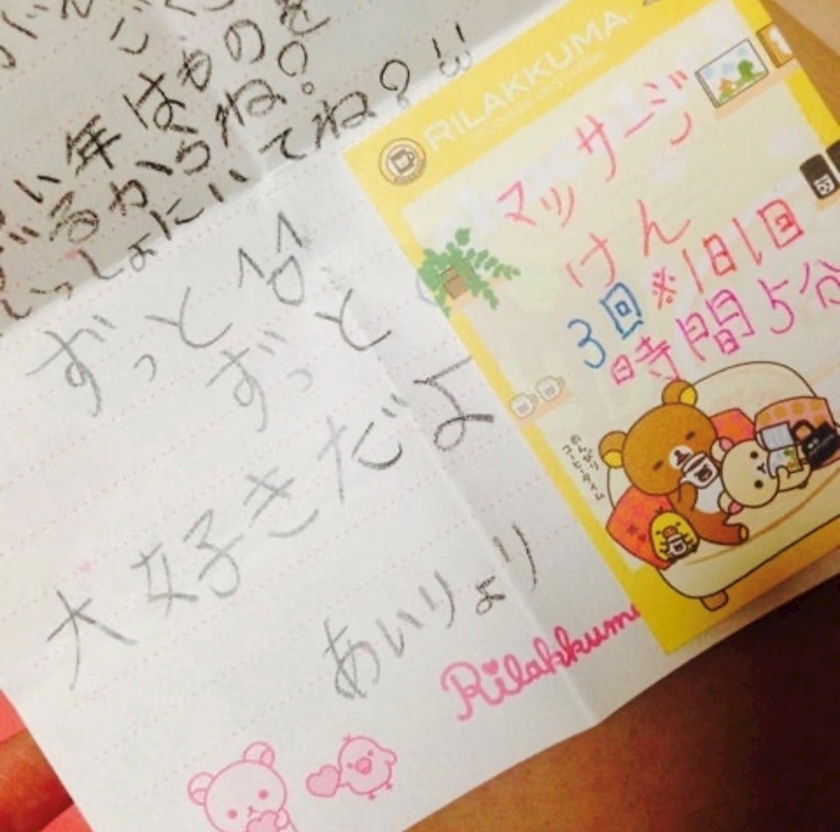 い年はものを
るからね?
いっしょにいてね?!!
ずっと
ずっと
大好きだよ
あいりより
Rilakkuma
RILAKKUMA
マッサージ
けん
3回※1日1回
時間5分
のんびり
コーヒータイム